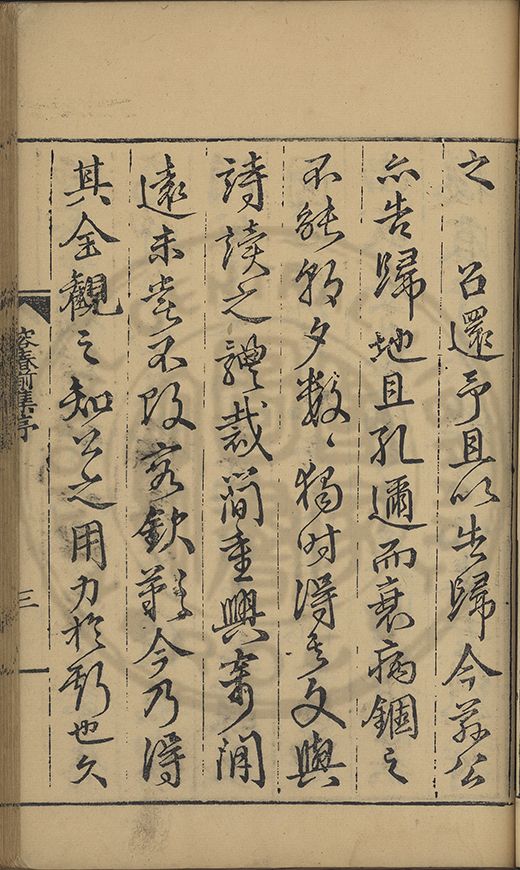 之 召還予且以歸今茲公
亦告歸地且孔邇而衰病錮之
不能朝夕數〻獨时得其文與
詩讀之體裁簡重興寄閒
遠未嘗不改容欽艷今乃得
其全觀之知公之用力於斯也久
容春前集序
三